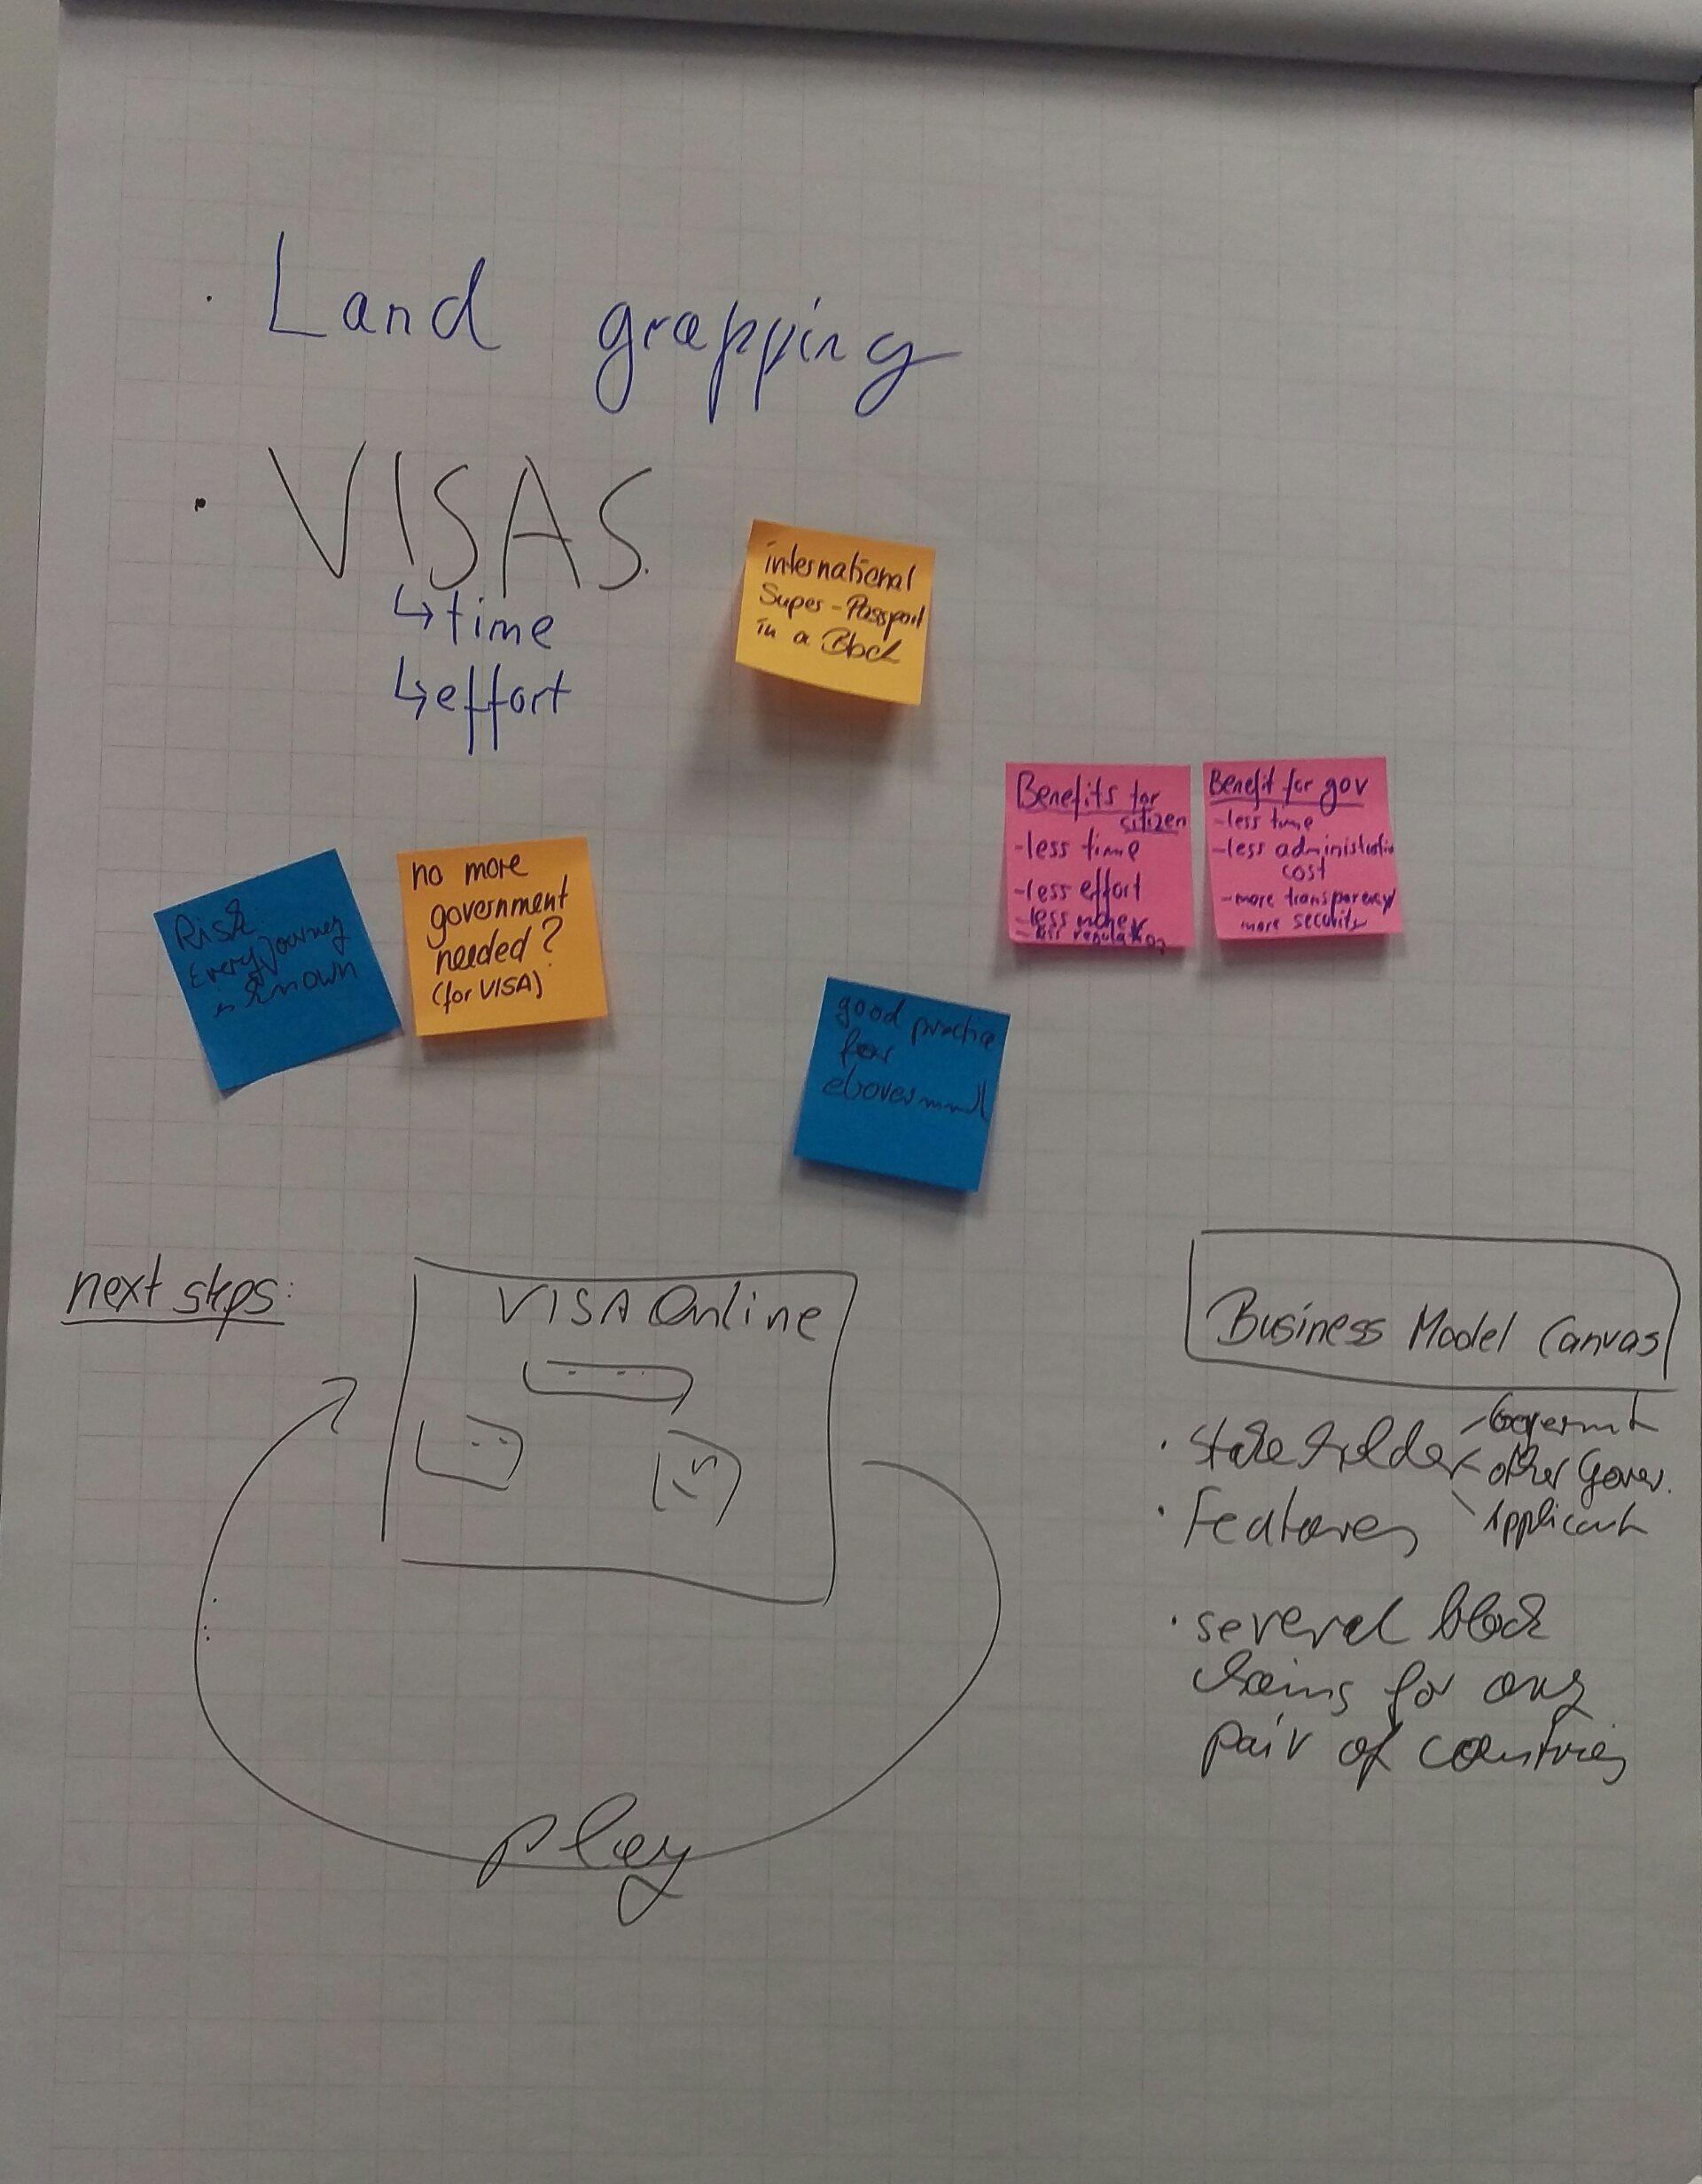 · Land grapping
· VISAS.
↳ time
↳ effort
international
Super-Passport
in a Block
Benefits for
citizen
- less time
- less effort
- less money
Benefit for gov
- less time
- less administrative
cost
- more transparency
more security
Risk:
Every Journey
is known
no more
government
needed?
(for VISA)
good practice
for
eGovernment
next steps:
VISA Online
play
Business Model Canvas
· Stakeholder
Government
other Gover.
Applicant
· Features
· several block
chains for any
pair of countries